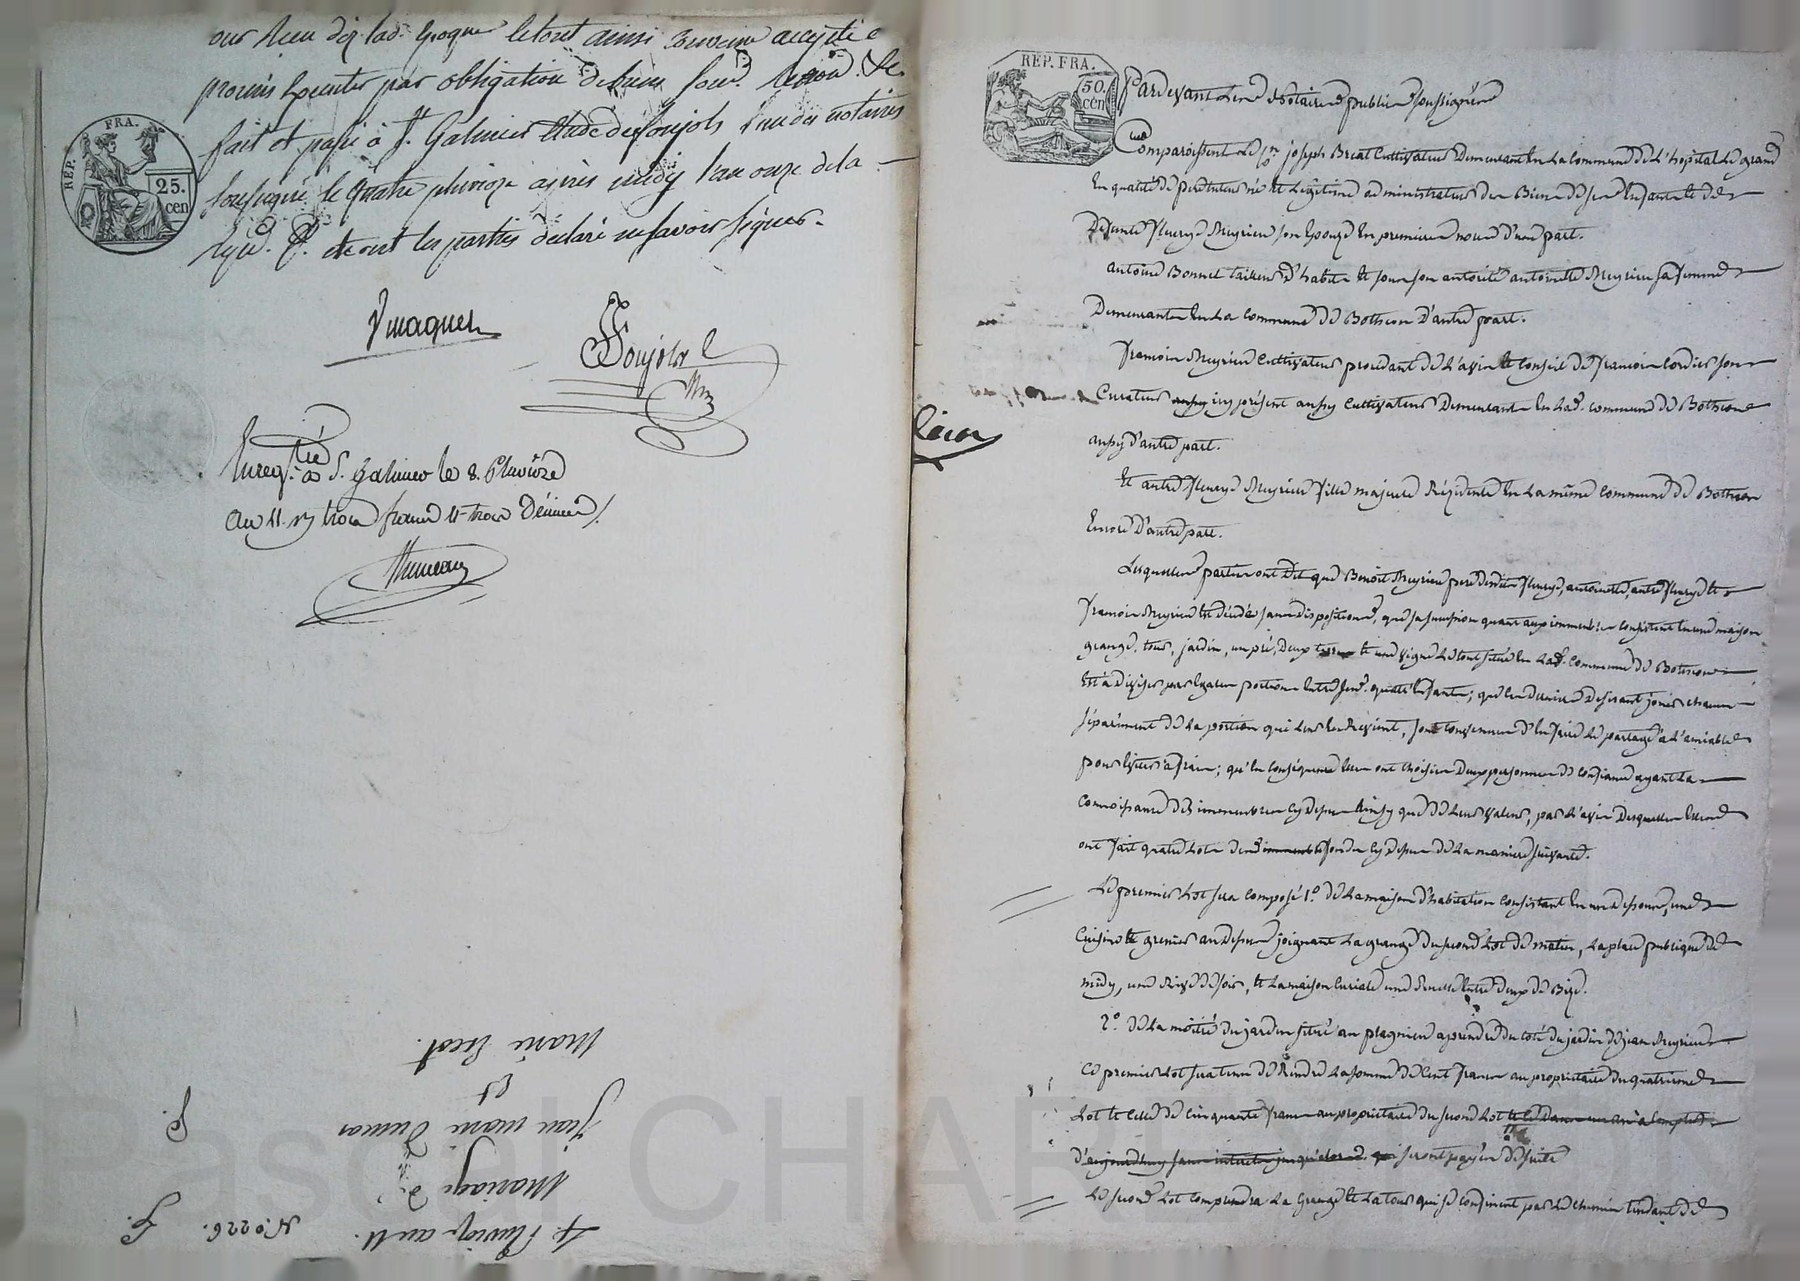 our lieu d'iq. lad. Epoque le tout ainsi convenu accepté &
promis Executer par obligation de biens soum. renon. &c.
fait et passé à St. Galmier Etude de Soujols l'un des notaires
soussigné le quatre pluviose après midy l'an onze de la
Repu. f. et ont les parties déclaré ne savoir signer.
REP. FRA.
25.
cen
Vinaguet
Soujols
Enregtré à S. Galmier le 8. Pluviôse
an 11. trois francs
4. Pluviose an 11.
N.º 226.
Mariage de
Jean marie Dumas
et
Marie Crest.
REP. FRA.
50.
cen
Pardevant Les Notaires publics soussignés
Comparoissent Le Sn. joseph Breat Cultivateur Demeurant En La Commune De L'hopital Le grand
En qualité de pere tuteur né et Légitime administrateur des Biens de ses Enfants et de
Defunte fleurye Meyrieu son Epouze En premiere noces D'une part.
antoine Bonnet tailleur d'habits et sous son autorité antoinette Meyrieu sa femme
Demeurants En La commune De Botheon D'autre part.
francois Meyrieu Cultivateur procédant De L'avis et Conseil De francois Cordier son
Curateur icy présent aussy Cultivateur Demeurants En Lad. commune De Botheon
aussy D'autre part.
Et autre fleurye Meyrieu fille majeure Résidente En La même commune De Botheon
Encore D'autre part.
Lesquelles parties ont Dit que Benoit Meyrieu pere Desdits fleurye, antoinette, autre fleurye et
francois Meyrieu Est décédé sans dispositions, que sa succession quant aux immeubles consistent En une maison
grange, tour, jardin, un pré, Deux terres et une vigne Le tout situé En Lad. Commune De Botheon
Est à Diviser par Egales portions Entre ses quatre Enfants; que Ces derniers Desirant jouir chacun
séparément De La portion qui Leur En Revient, sont Convenus d'En faire Le partage a L'amiable
pour Eviter a frais; qu'En Conséquence Elles ont choisies Deux personnes De Confiance ayant La
Connoissance des immeubles cy Dessus Ainsy que De Leur valeur, par L'avis Desquelles Elles
ont fait quatre Lots des immeubles fonds cy Dessus De La maniere suivante.
Le premier Lot sera composé 1.º De La maison d'habitation Consistant En un dessous, une
Cuisine et grenier au Dessus joignant La grange Du second Lot De matin, La place publique De
midy, une Rize De soir, et La maison Curiale une Ruelle Entre deux De Bize.
2.º De La moitié Du jardin situé au plagnieu a prendre Du coté Du jardin De Jean Meyrieu
Ce premier Lot sera tenu De Rendre La somme De Cent francs au propriétaire Du quatrieme
Lot et Celle De Cinquante francs au propriétaire Du second Lot et Ce Dans un an à Compter
D'aujourd'huy sans interets jusqu'alors qui seront payés De suite
Le second Lot Comprendra La Grange et La tour qui se Confinent par Le Chemin tendant De
Pascal CHAREY